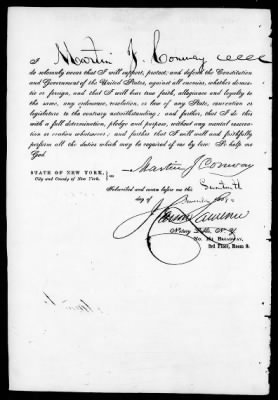 I Martin J. Conway
do solemnly swear that I will support, protect, and defend the Constitution
and Government of the United States, against all enemies, whether domes-
tic or foreign, and that I will bear true faith, allegiance and loyalty to
the same, any ordinance, resolution, or law of any State, convention or
legislature to the contrary notwithstanding; and further, that I do this
with a full determination, pledge and purpose, without any mental reser-
vation or evasion whatsoever; and further that I will well and faithfully
perform all the duties which may be required of me by law: So help me
God.
Martin J Conway
STATE OF NEW YORK,
City and County of New York.
} ss.
Subscribed and sworn before me this
day of
Notary Public, N. Y.
BROADWAY,
3rd Floor, Room 9.